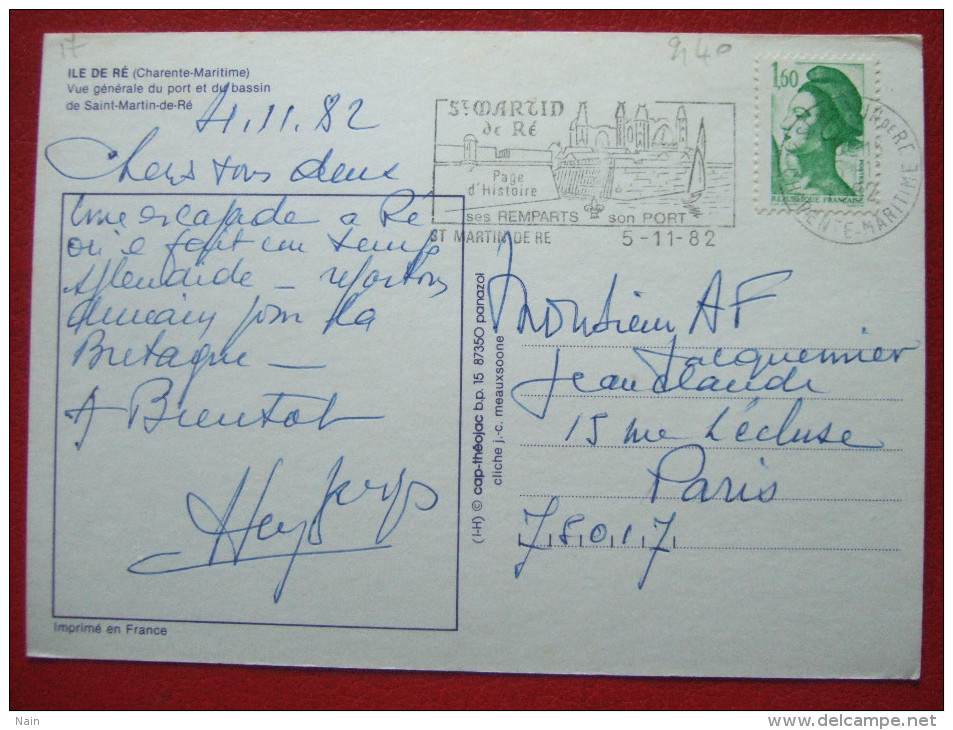 17
9,40
ILE DE RÉ (Charente-Maritime)
Vue générale du port et du bassin
de Saint-Martin-de-Ré
4.11.82
Chers tous deux
Une escapade a Ré
où il fait un temps
splendide – repartons
demain pour la
Bretagne –
A Bientot
Imprimé en France
(I-H) © cap-théojac b.p. 15 87350 panazol
cliche j.-c. meauxsoone
St MARTIN
de Ré
Page
d'Histoire
ses REMPARTS son PORT
ST MARTIN DE RE 5-11-82
1,60
REPUBLIQUE FRANÇAISE
CHARENTE-MARITIME
Monsieur AF
Jacquemier
Jean Claude
15 rue Lécluse
Paris
78017
Nain
www.delcampe.net